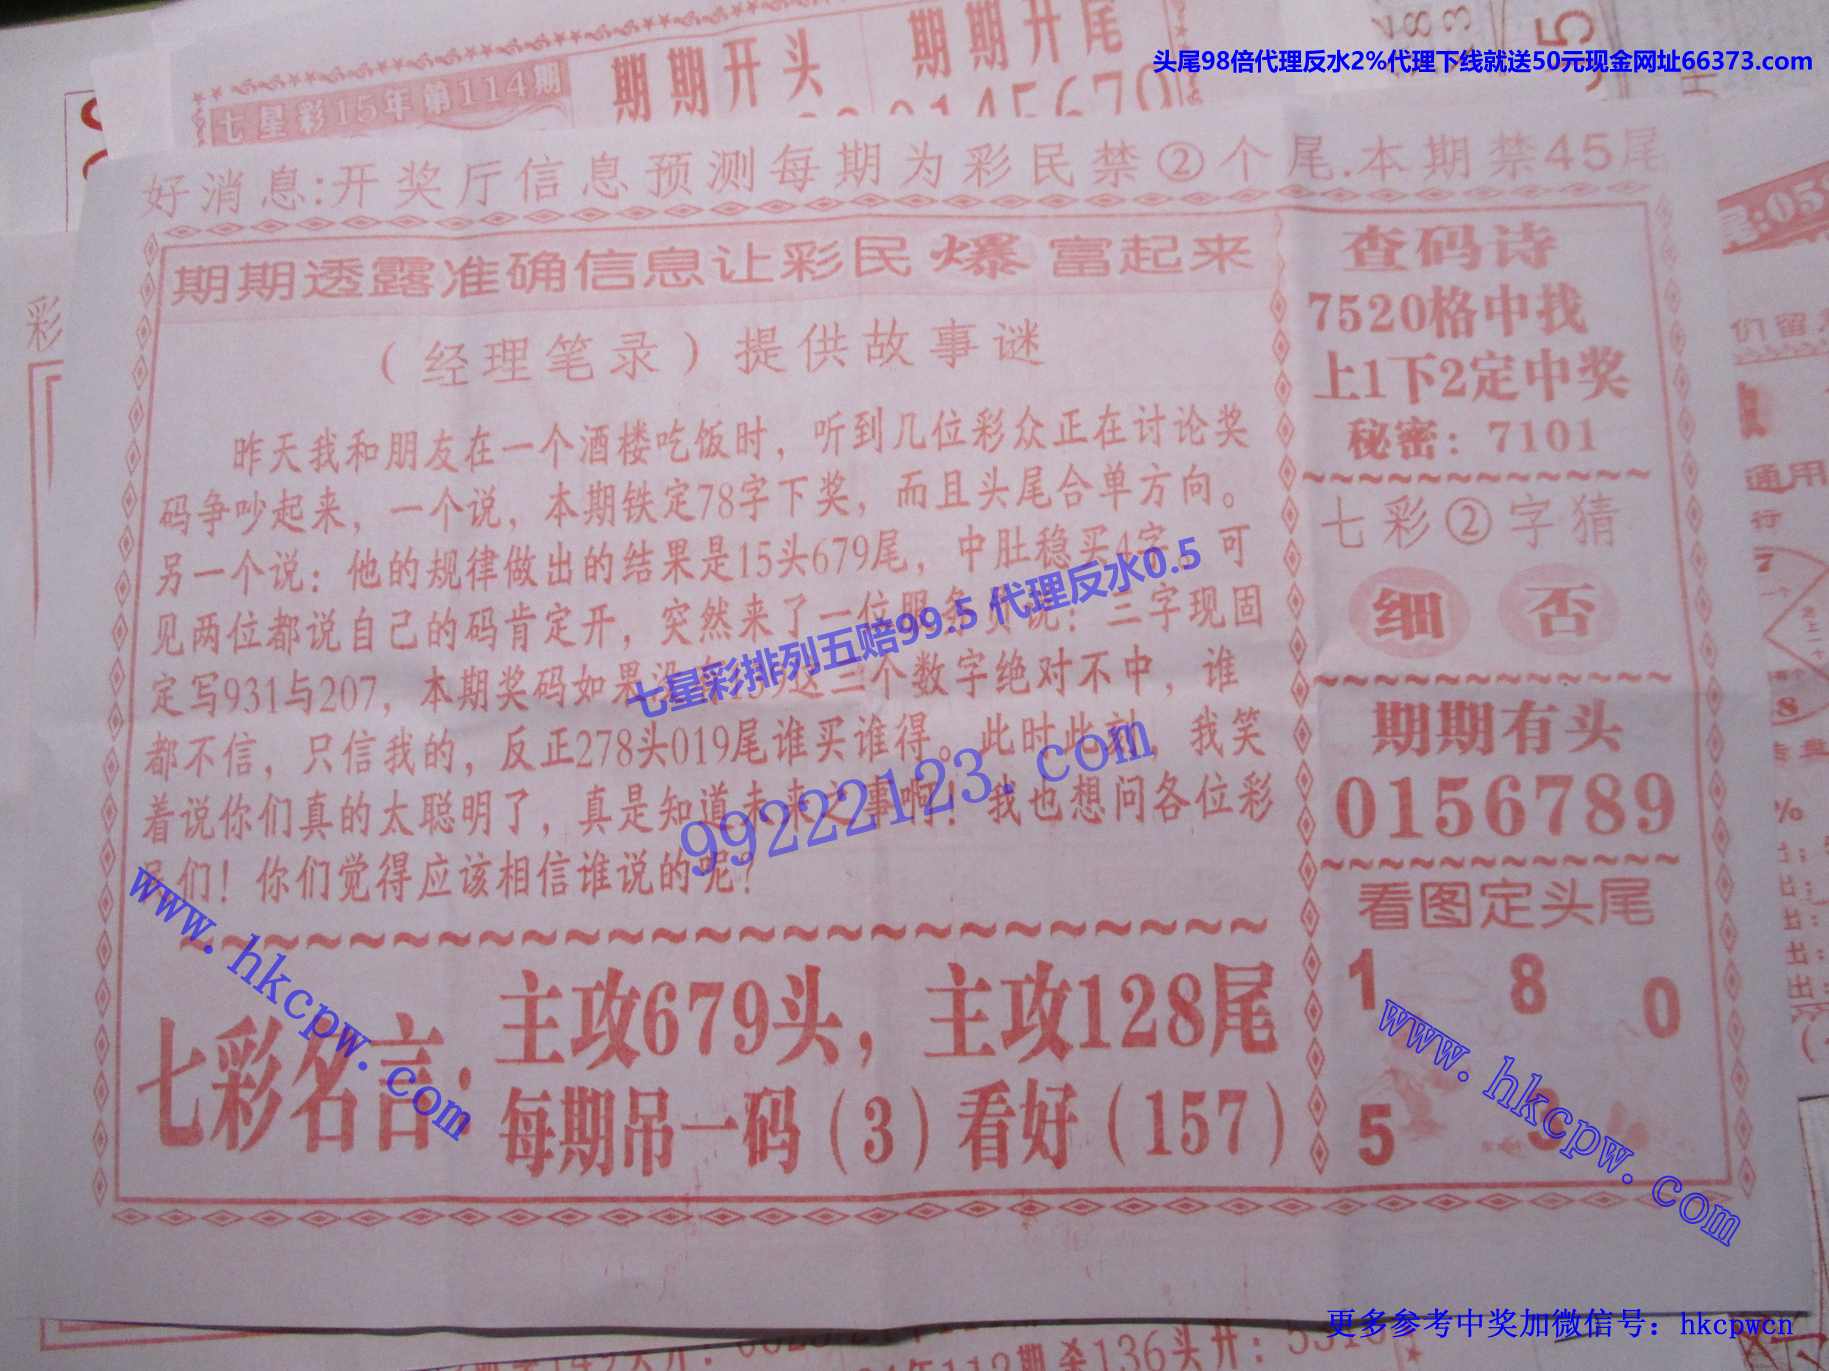 头尾98倍代理反水2%代理下线就送50元现金网址66373.com
七星彩15年第114期
期期开头
期期开尾
好消息:开奖厅信息预测每期为彩民禁②个尾.本期禁45尾
期期透露准确信息让彩民爆富起来
（经理笔录）提供故事谜
昨天我和朋友在一个酒楼吃饭时，听到几位彩众正在讨论奖
码争吵起来，一个说，本期铁定78字下奖，而且头尾合单方向。
另一个说：他的规律做出的结果是15头679尾，中肚稳买4字，可
见两位都说自己的码肯定开，突然来了一位服务 说：三字现固
定写931与207，本期奖码如果没 这二个数字绝对不中，谁
都不信，只信我的，反正278头019尾谁买谁得。此时此刻，我笑
着说你们真的太聪明了，真是知道未来之事啊！我也想问各位彩
们！你们觉得应该相信谁说的呢？
七星彩排列五赔99.5 代理反水0.5
99222123.com
七彩名言：
主攻679头，主攻128尾
每期吊一码（3）看好（157）
www.hkcpw.com
查码诗
7520格中找
上1下2定中奖
秘密：7101
七彩②字猜
细 否
期期有头
0156789
看图定头尾
1 8 0
5 3
www.hkcpw.com
彩
通用
行
7
8
%
更多参考中奖加微信号：hkcpwcn